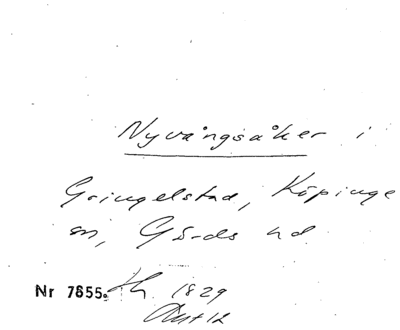 Nyvångsåker i
Gringelstad, Köpinge
sn, Gärds hd.
Nr 7855. 1829